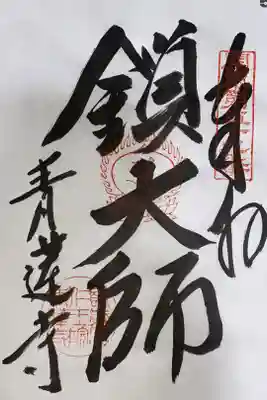 奉拝
鎖大師
青蓮寺